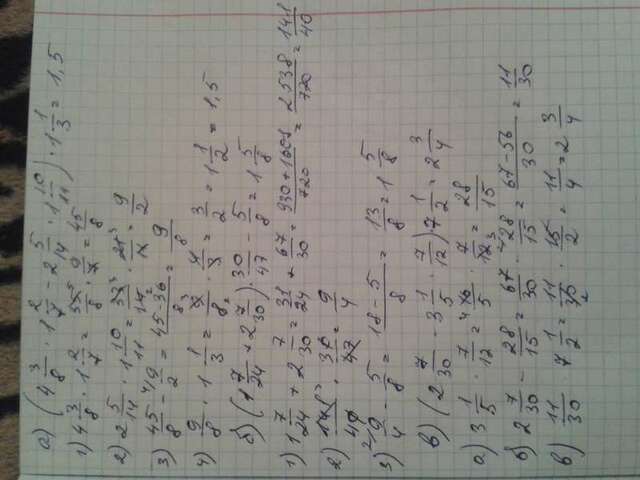 а) (4 3/8 · 1 2/7 - 2 5/14 · 1 10/11) · 1 1/3 = 1,5
1) 4 3/8 · 1 2/7 = 35/8 · 9/7 = 45/8
2) 2 5/14 · 1 10/11 = 33/14 · 21/11 = 9/2
3) 45/8 - 9/2 = 45-36/8 = 9/8
4) 9/8 · 1 1/3 = 9/8 · 4/3 = 3/2 = 1 1/2 = 1,5
б) (1 7/24 + 2 7/30) 30/47 - 5/8 = 1 5/8
1) 1 7/24 + 2 7/30 = 31/24 + 67/30 = 2538/720 = 141/40
2) 141/40 · 30/47 = 9/4
3) 9/4 - 5/8 = 18-5/8 = 13/8 = 1 5/8
в) (2 7/30 - 3 1/5 · 7/12) 7 1/2 = 2 3/4
а) 3 1/5 · 7/12 = 16/5 · 7/12 = 28/15
б) 2 7/30 - 28/15 = 67/30 - 28/15 = 67-56/30 = 11/30
в) 11/30 · 7 1/2 = 11/30 · 15/2 = 11/4 = 2 3/4